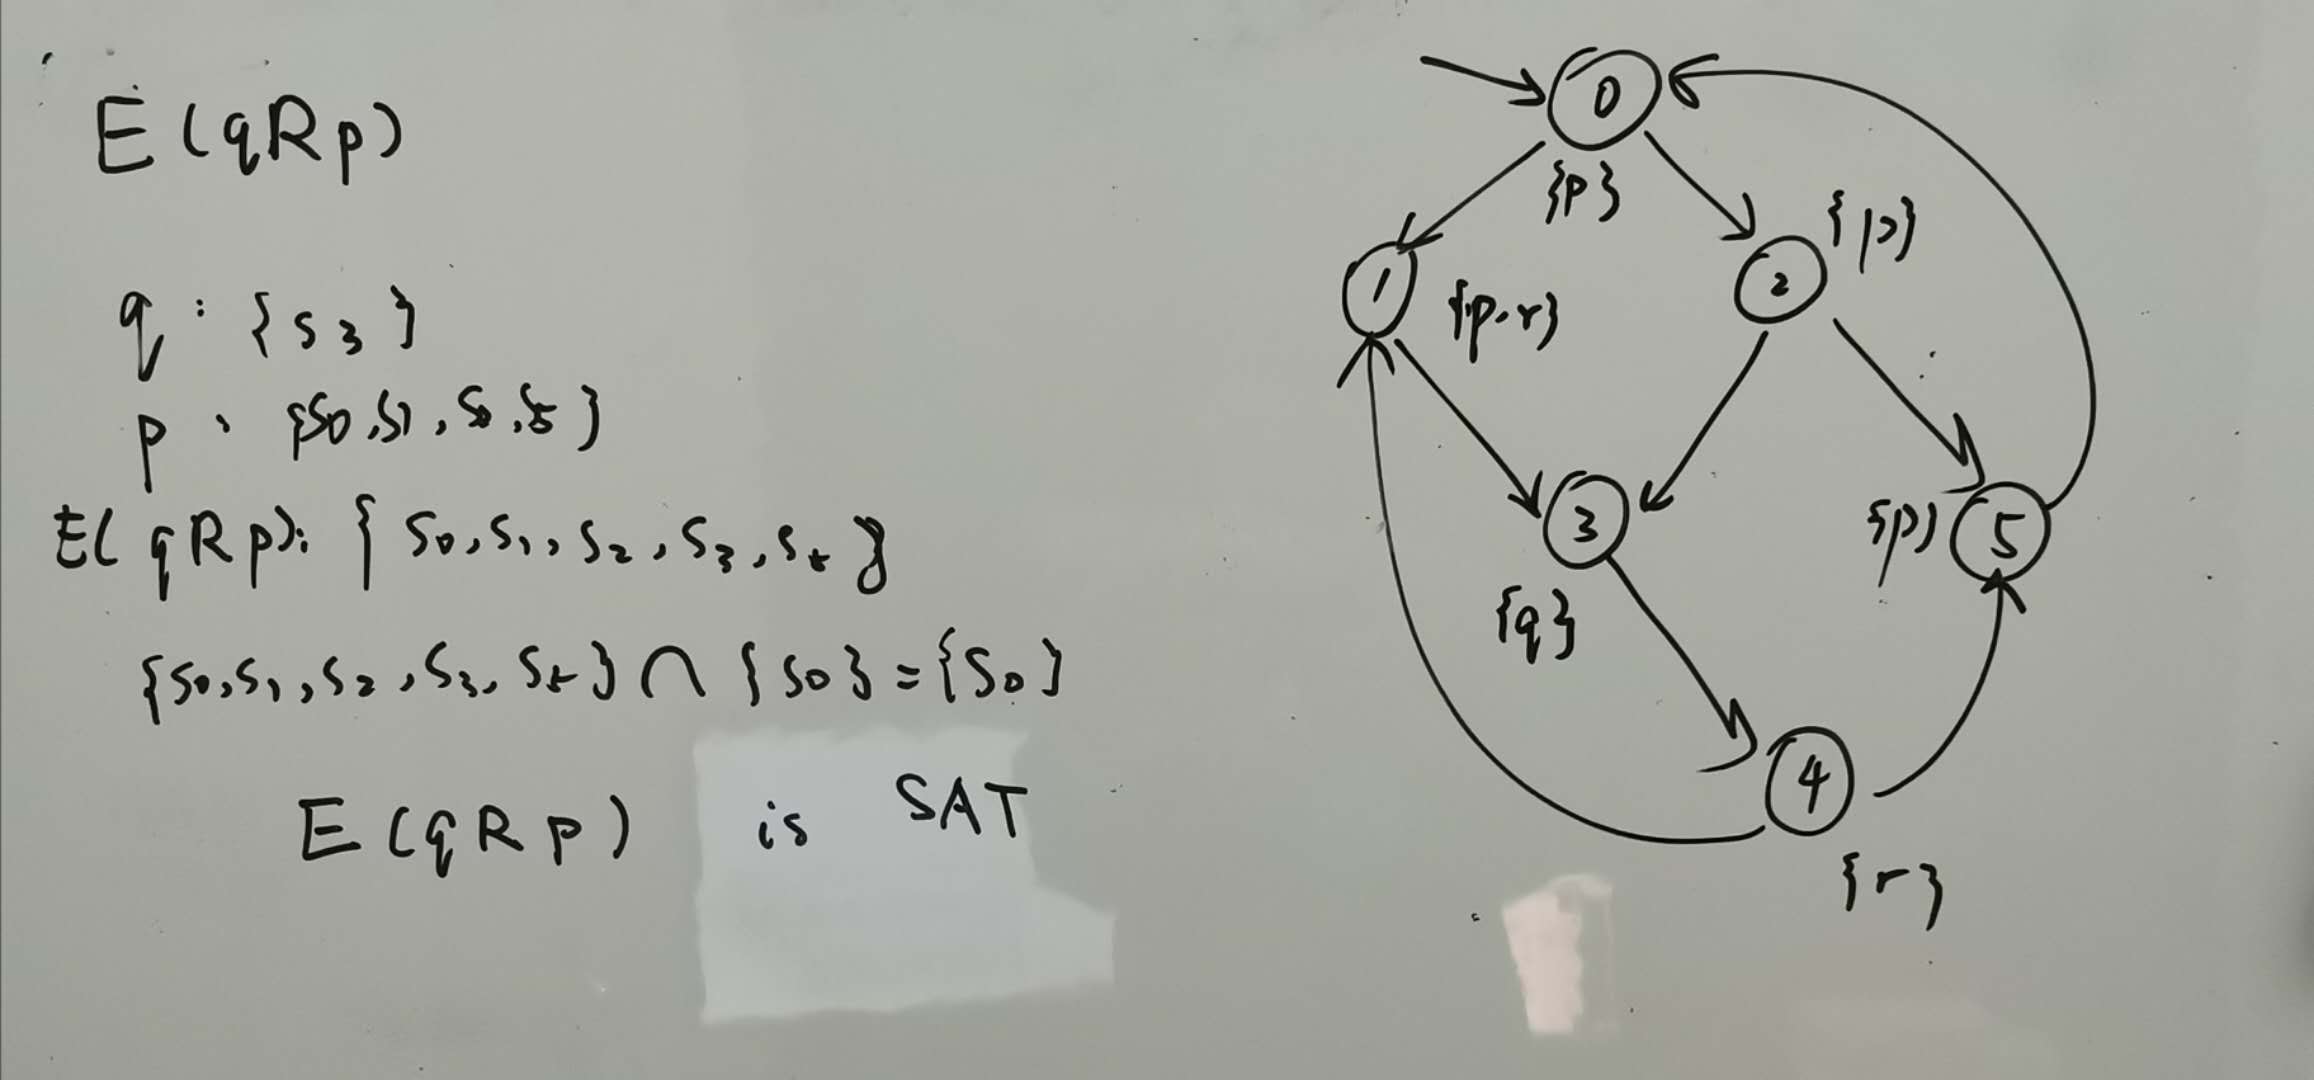 E(qRp)
q : {s3}
p : {s0,s1,s2,s5}
E(qRp): {s0,s1,s2,s3,s5}
{s0,s1,s2,s3,s5} ∩ {s0} = {s0}
E(qRp) is SAT
0
{p}
{p}
1
2
{p,r}
3
{p}
5
{q}
4
{r}